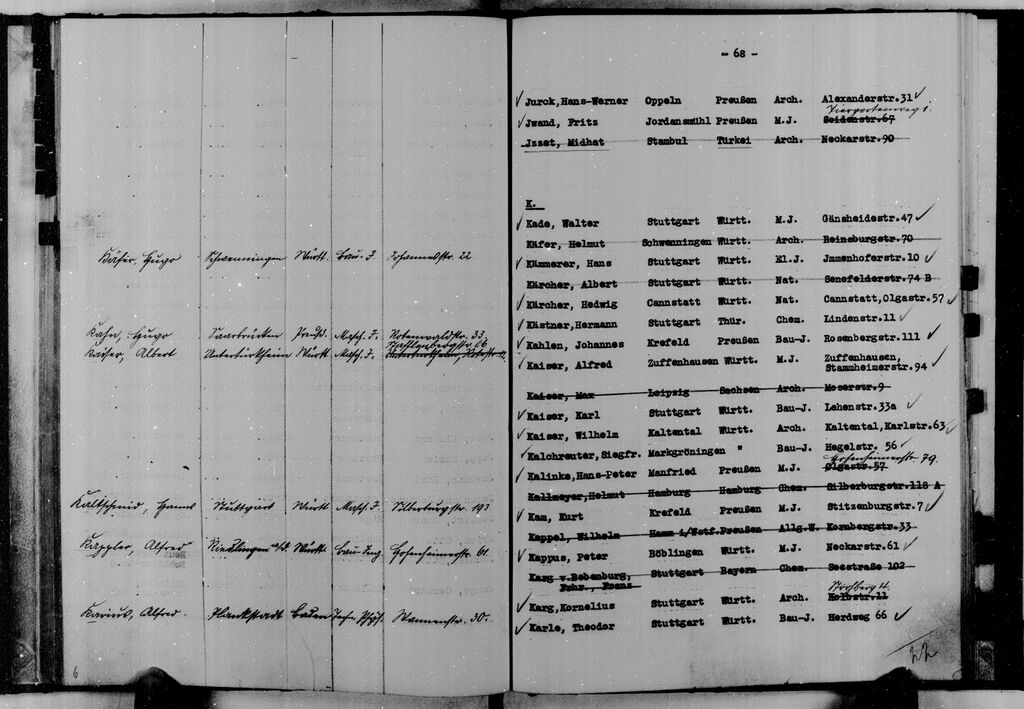 Käfer, Hugo Schwenningen Württ. Bau-J. Johannesstr. 22
Kahn, Hugo Saarbrücken Preuß. Masch. J. Rotenwaldstr. 33
Kaiser, Albert Untertürkheim Württ. Masch. J.
Kaltschmid, Stuttgart Württ Masch J Silberburgstr. 193
Kappler, Alfred Riedlingen a/d. Württ. Bau-Ing. Hohenheimerstr. 61.
Karius, Alfred. Plankstadt Baden Wannenstr. 30.
6
- 68 -
Jurck,Hans-Werner Oppeln Preußen Arch. Alexanderstr.31
Tiergartenweg 1.
Jwand, Fritz Jordansmühl Preußen M.J. Seidenstr.67
Jzzet, Midhat Stambul Türkei Arch. Neckarstr.90
K.
Kade, Walter Stuttgart Württ. M.J. Gänsheidestr.47
Käfer, Helmut Schwenningen Württ. Arch. Reinsburgstr.70
Kämmerer, Hans Stuttgart Württ. El.J. Jmmenhoferstr.10
Kärcher, Albert Stuttgart Württ. Nat. Senefelderstr.74 B
Kärcher, Hedwig Cannstatt Württ. Nat. Cannstatt,Olgastr.57
Kästner,Hermann Stuttgart Thür. Chem. Lindenstr.11
Kahlen, Johannes Krefeld Preußen Bau-J. Rosenbergstr.111
Kaiser, Alfred Zuffenhausen Württ. M.J. Zuffenhausen,
Stammheimerstr.94
Kaiser, Max Leipzig Sachsen Arch. Moserstr.9
Kaiser, Karl Stuttgart Württ. Bau-J. Lehenstr.33a
Kaiser, Wilhelm Kaltental Württ. Arch. Kaltental,Karlstr.63
Kalchreuter,Siegfr. Markgröningen " Bau-J. Hegelstr. 56
Hohenheimerstr. 79.
Kalinke,Hans-Peter Manfried Preußen M.J. Olgastr.57
Kallmeyer,Helmut Hamburg Hamburg Chem. Silberburgstr.118 A
Kam, Kurt Krefeld Preußen M.J. Stitzenburgstr.7
Kappel, Wilhelm Hamm i/Wstf.Preußen Allg.W. Kornbergstr.33
Kappus, Peter Böblingen Württ. M.J. Neckarstr.61
Karg v.Bebenburg, Stuttgart Bayern Chem. Seestraße 102
Frhr., Franz
Karg,Kornelius Stuttgart Württ. Arch. Kolbstr.11
Karle, Theodor Stuttgart Württ. Bau-J. Herdweg 66
22